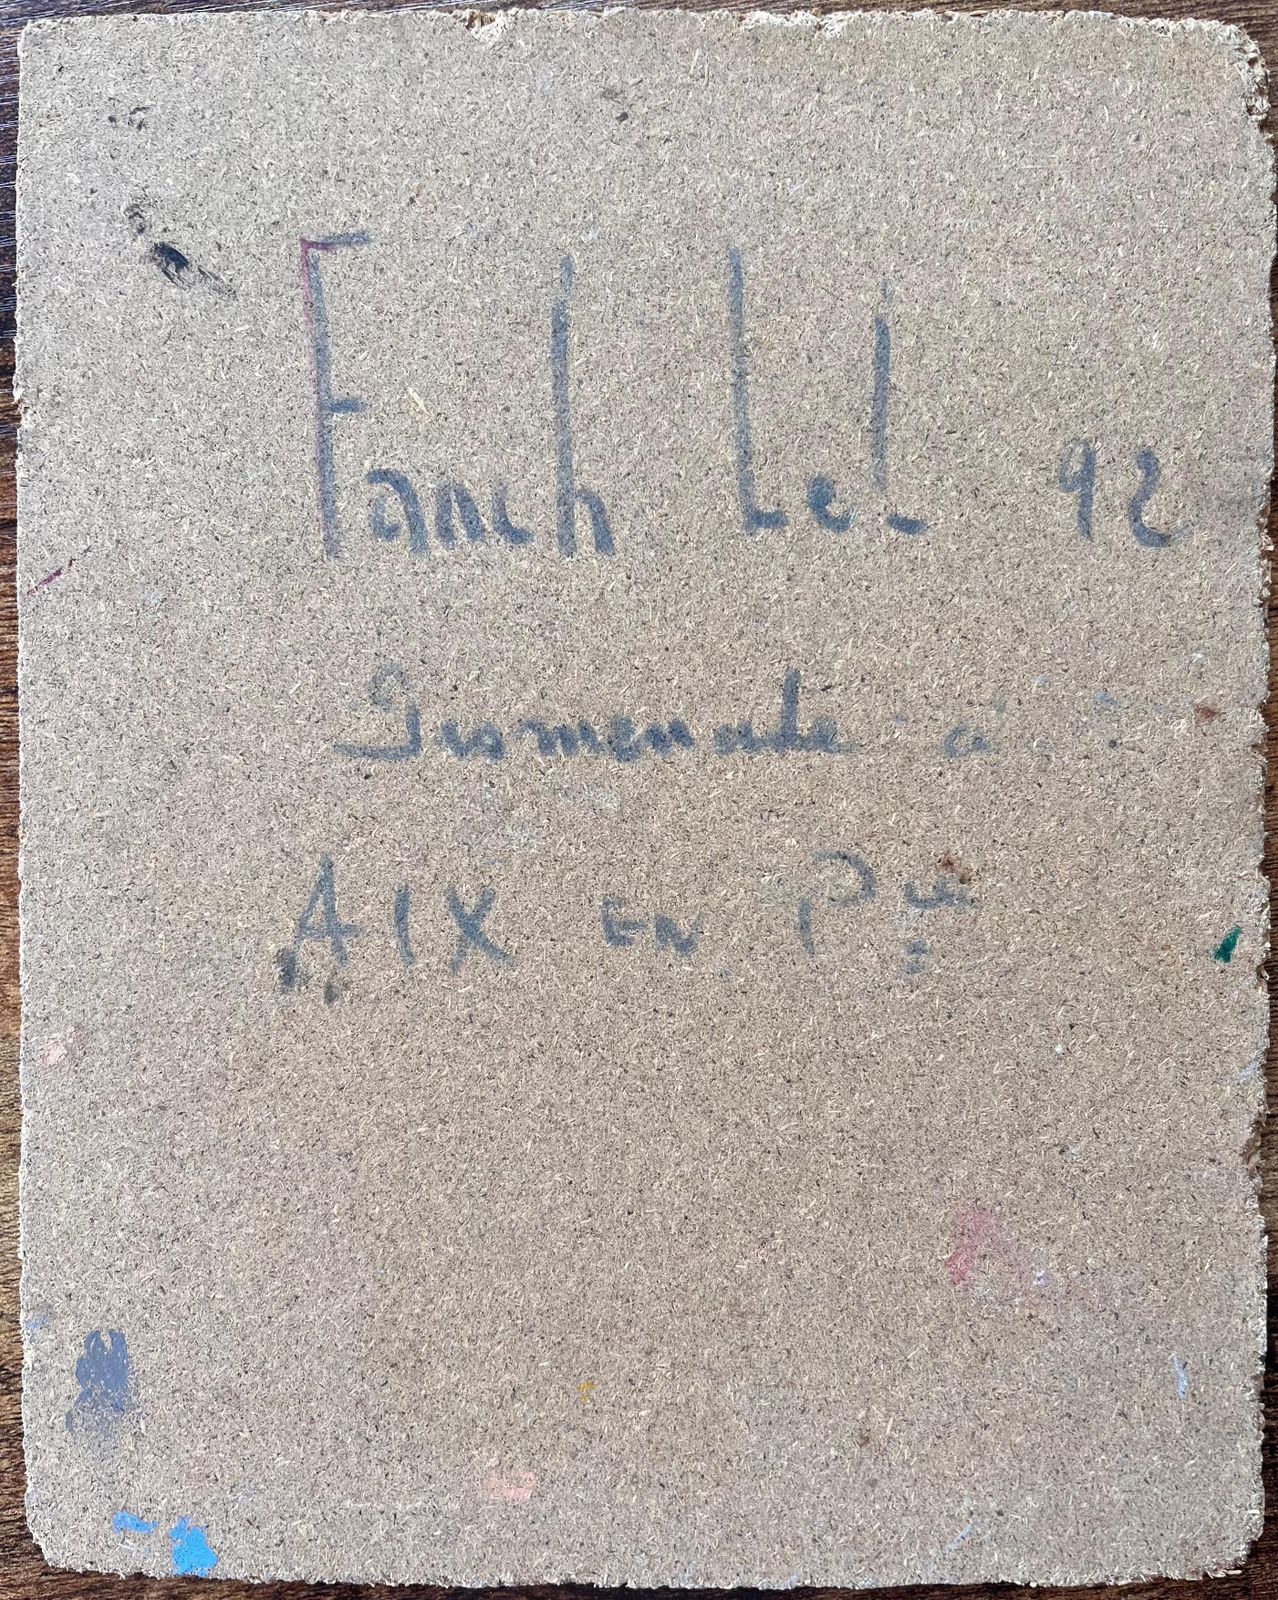 Fanch Lel 92
Promenade à
AIX EN Pce